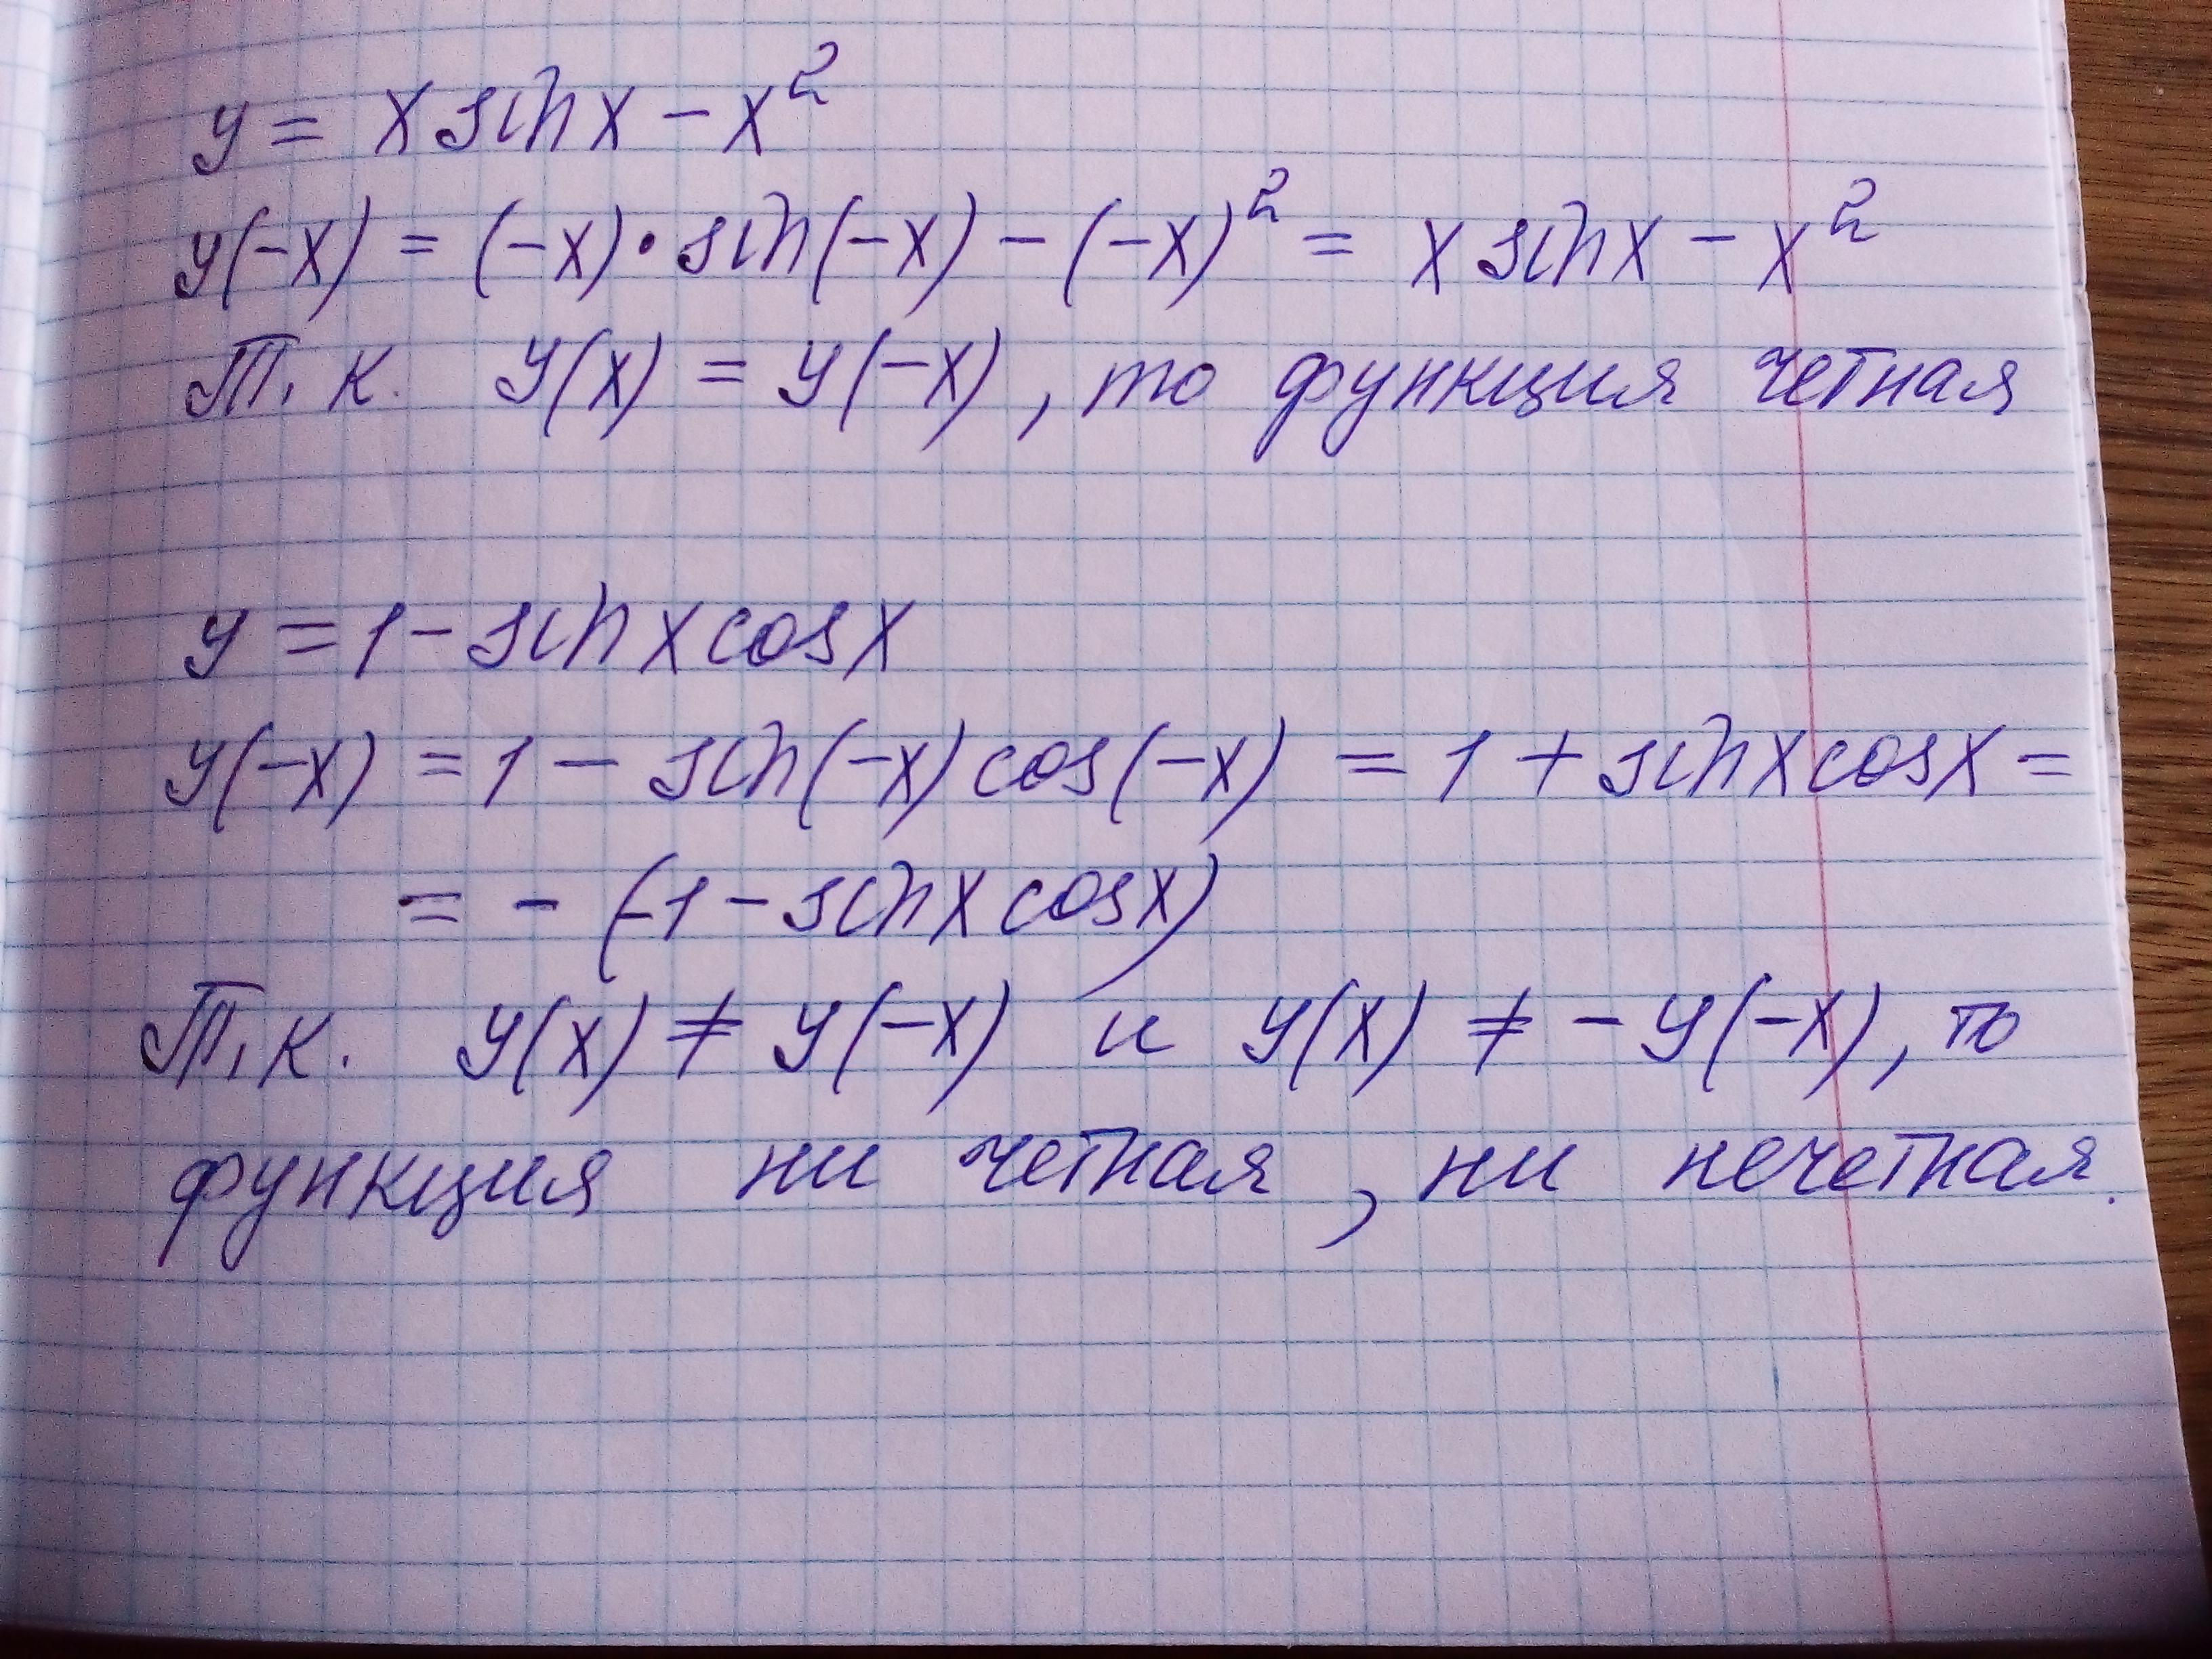 y = x sin x - x²
y(-x) = (-x) • sin(-x) - (-x)² = x sin x - x²
Т. к. y(x) = y(-x), то функция четная
y = 1 - sin x cos x
y(-x) = 1 - sin(-x) cos(-x) = 1 + sin x cos x =
= - (-1 - sin x cos x)
Т. к. y(x) ≠ y(-x) и y(x) ≠ - y(-x), то
функция ни четная, ни нечетная.